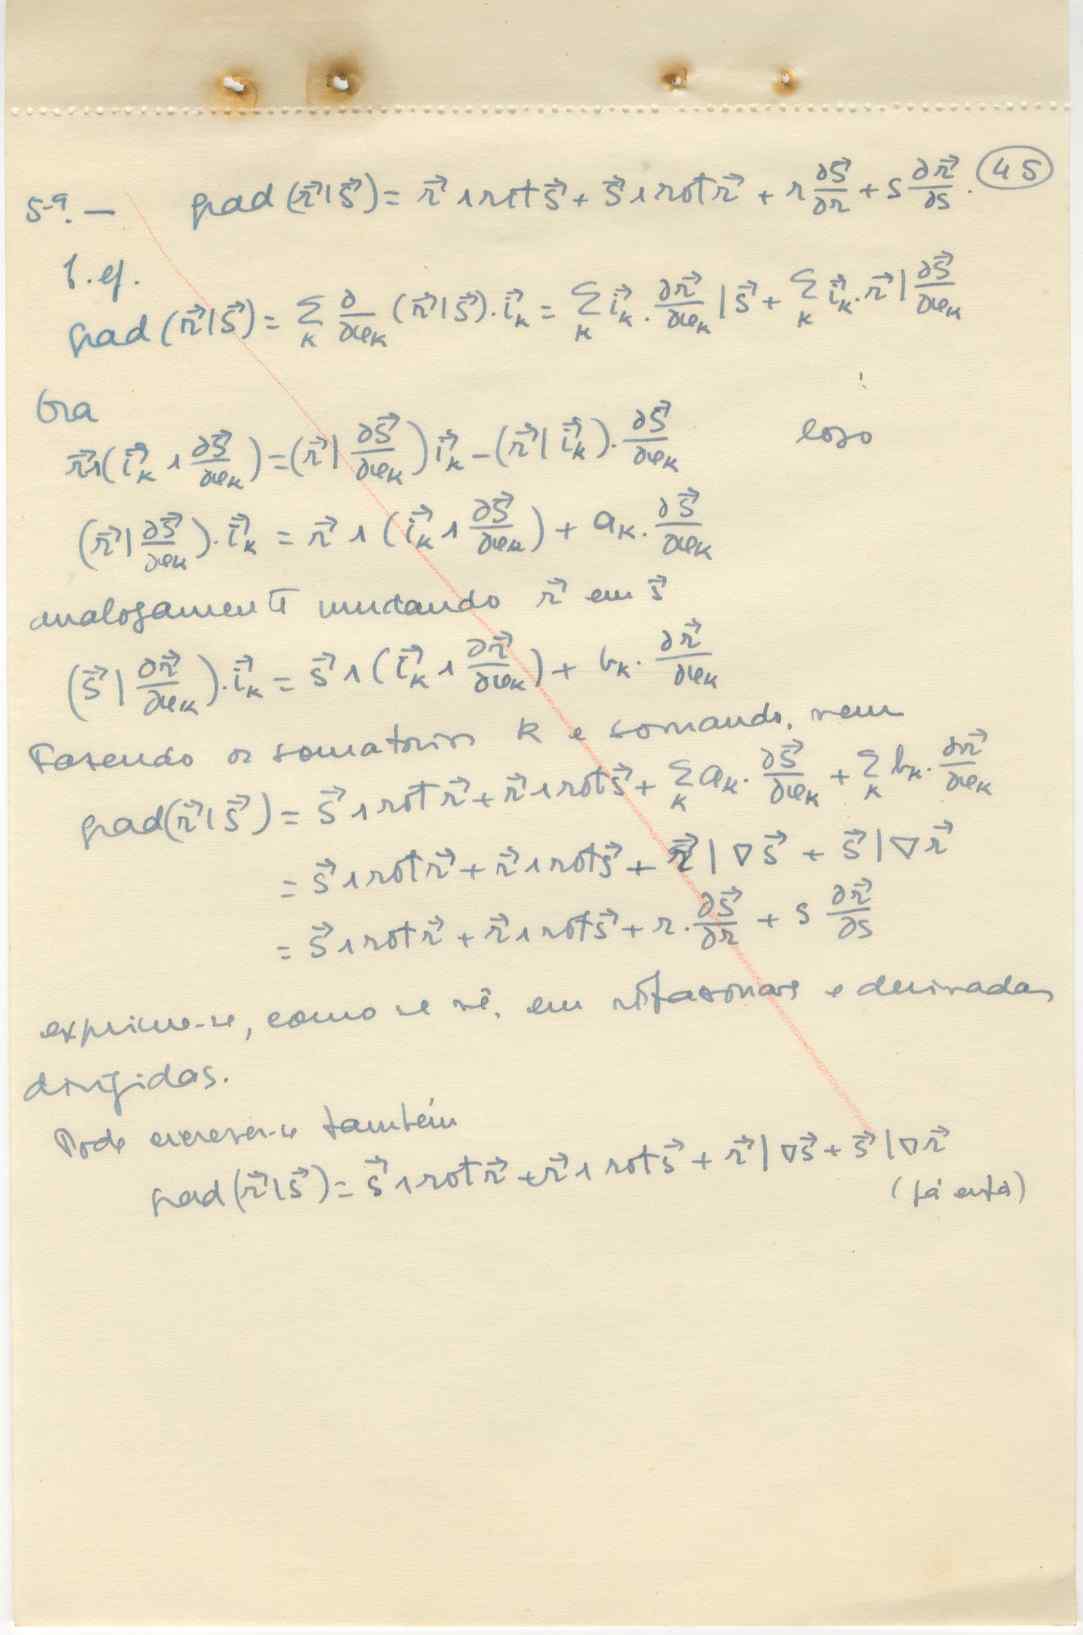 45
5-9. — grad (r⃗|s⃗) = r⃗ ∧ rot s⃗ + s⃗ ∧ rot r⃗ + r ∂s⃗/∂r + s ∂r⃗/∂s.
grad (r⃗|s⃗) = Σ_k ∂/∂x_k (r⃗|s⃗)·i⃗_k = Σ_k i⃗_k · ∂r⃗/∂x_k | s⃗ + Σ_k i⃗_k · r⃗ | ∂s⃗/∂x_k
Ora
r⃗∧(i⃗_k ∧ ∂s⃗/∂x_k) = (r⃗ | ∂s⃗/∂x_k) i⃗_k − (r⃗ | i⃗_k)· ∂s⃗/∂x_k logo
(r⃗ | ∂s⃗/∂x_k)· i⃗_k = r⃗ ∧ (i⃗_k ∧ ∂s⃗/∂x_k) + a_k · ∂s⃗/∂x_k
analogamente mudando r⃗ em s⃗
(s⃗ | ∂r⃗/∂x_k)· i⃗_k = s⃗ ∧ (i⃗_k ∧ ∂r⃗/∂x_k) + b_k · ∂r⃗/∂x_k
Fazendo os somatorios k e somando, vem
grad(r⃗|s⃗) = s⃗ ∧ rot r⃗ + r⃗ ∧ rot s⃗ + Σ_k a_k · ∂s⃗/∂x_k + Σ_k b_k · ∂r⃗/∂x_k
= s⃗ ∧ rot r⃗ + r⃗ ∧ rot s⃗ + r⃗ | ∇s⃗ + s⃗ | ∇r⃗
= s⃗ ∧ rot r⃗ + r⃗ ∧ rot s⃗ + r · ∂s⃗/∂r + s ∂r⃗/∂s
exprime-se, como se vê, em rotacionais e derivadas
dirigidas.
Pode escrever-se também
grad(r⃗|s⃗) = s⃗ ∧ rot r⃗ + r⃗ ∧ rot s⃗ + r⃗ | ∇s⃗ + s⃗ | ∇r⃗
(já está)